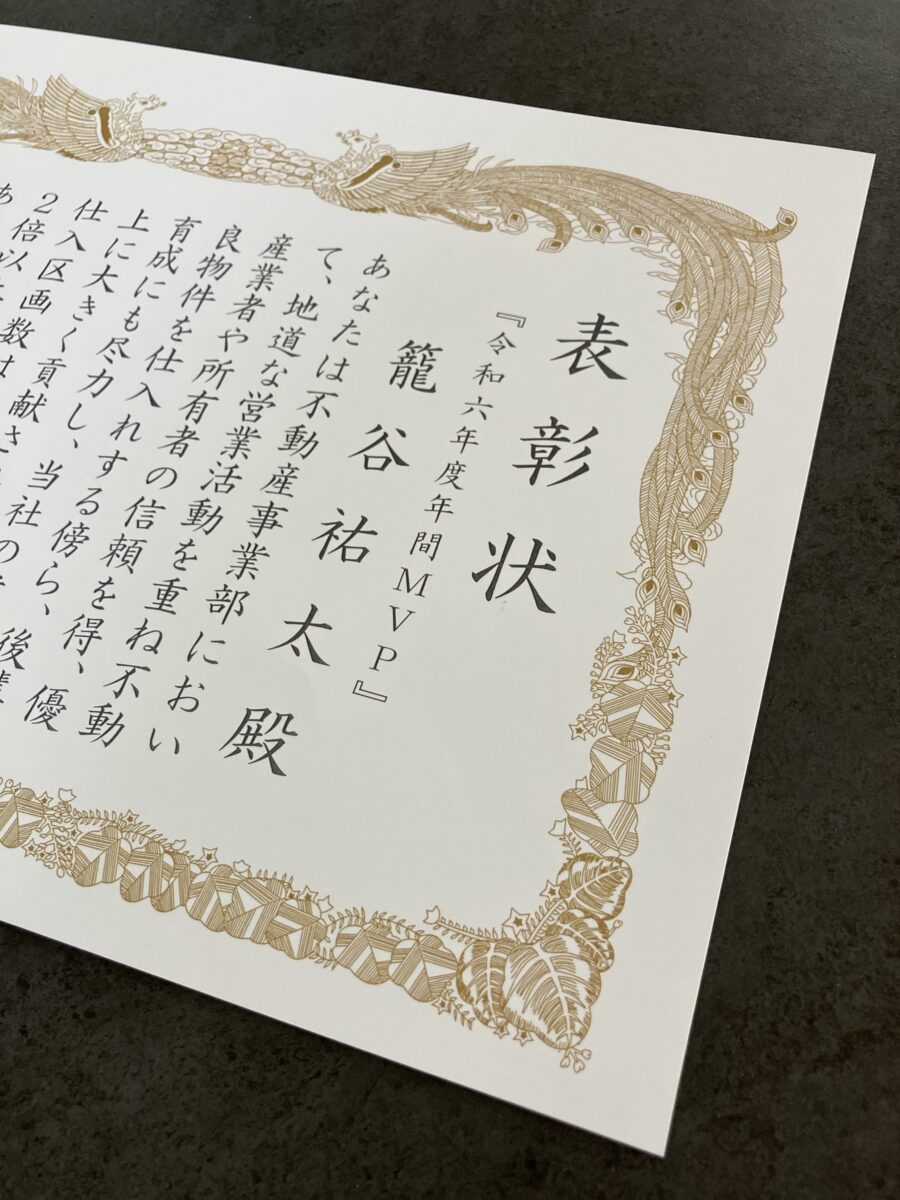 表彰状
『令和六年度年間MVP』
籠谷祐太殿
あなたは不動産事業部におい
て、地道な営業活動を重ね不動
産業者や所有者の信頼を得、優
良物件を仕入れする傍ら、後輩
育成にも尽力し、当社の
上に大きく貢献さ
仕入区画数は
2倍以上
あ